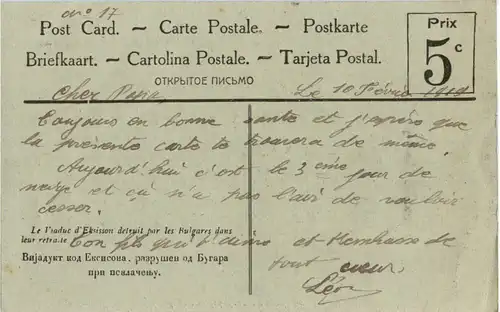 No 17
Post Card. — Carte Postale. — Postkarte
Briefkaart. — Cartolina Postale. — Tarjeta Postal.
ОТКРЫТОЕ ПИСЬМО
Prix
5 c
Cher Papa
Le 10 Février 1919
Toujours en bonne santé et j'espère que
la présente carte te trouvera de même.
Aujourd'hui c'est le 3 eme jour de
neige et ça n'a pas l'air de vouloir
cesser.
Le Viaduc d'Eksisson detruit par les Bulgares dans
leur retraite
Ton fils qui t'aime et t'embrasse de
tout cœur.
Léon
Виjадукт код Ексисова, разрушен од Бугара
при повлачењу.